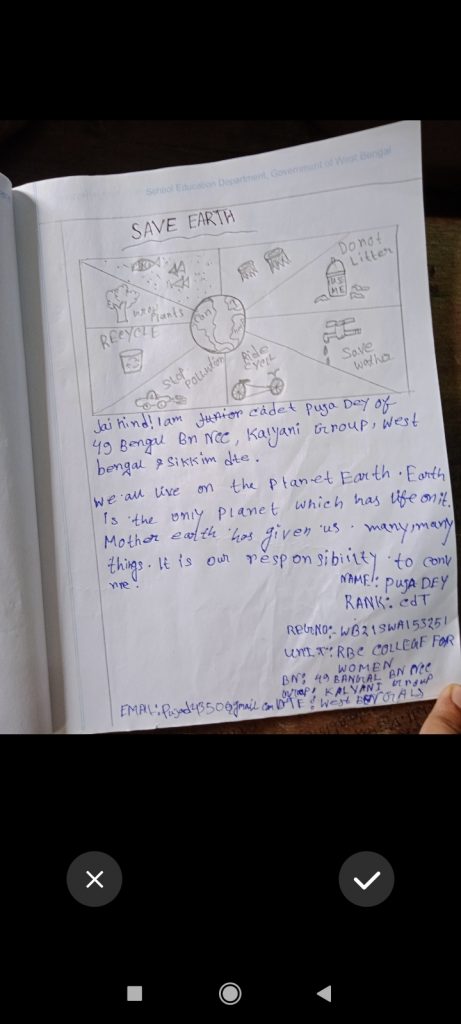 School Education Department, Government of West Bengal
SAVE EARTH
Do not
Litter
US
ME
Plants
RECYCLE
Stop
Pollution
Ride
Cycle
Save
wather
Jai Hind! I am Junior cadet Puja Dey of
49 Bengal Bn Ncc, Kalyani Group, West
bengal & Sikkim dte.
We all live on the Planet Earth. Earth
Is the only Planet which has life on it.
Mother earth has given us many many
things. It is our responsibility to conv
nre.
NAME: PUJA DEY
RANK: cdT
REGNO:- WB21SWA153251
UNIT: RBC COLLEGE FOR
WOMEN
BN: 49 BANGAL BN Ncc
Group: KALYANI Group
EMAI: DTE: West BENGAL &